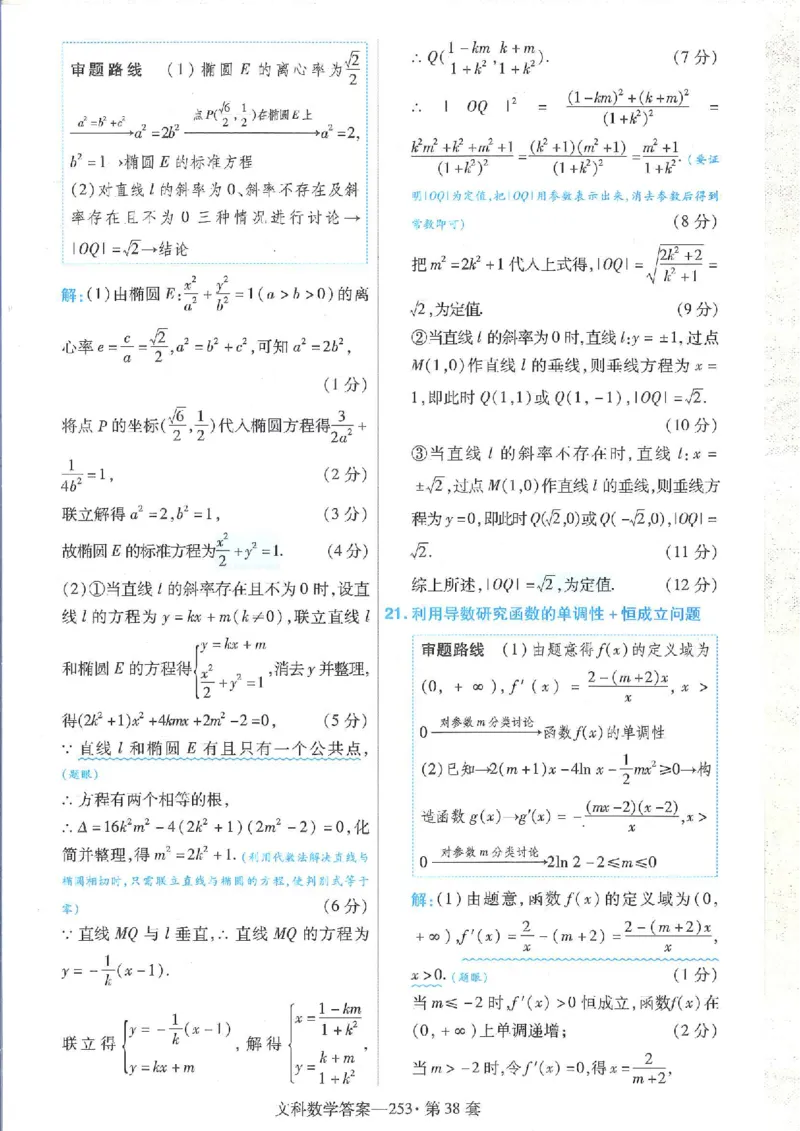 审题路线 (1)椭圆 E 的离心率为√2/2
a²=b²+c² → a²=2b² 点P(√6/2,1/2)在椭圆E上 → a²=2,
b²=1→椭圆 E 的标准方程
(2)对直线 l 的斜率为 0、斜率不存在及斜
率存在且不为 0 三种情况进行讨论→
|OQ|=√2→结论
解:(1)由椭圆 E:x²/a²+y²/b²=1(a>b>0)的离
心率 e=c/a=√2/2,a²=b²+c²,可知 a²=2b²,
(1 分)
将点 P 的坐标(√6/2,1/2)代入椭圆方程得3/2a²+
1/4b²=1, (2 分)
联立解得 a²=2,b²=1, (3 分)
故椭圆 E 的标准方程为x²/2+y²=1. (4 分)
(2)①当直线 l 的斜率存在且不为 0 时,设直
线 l 的方程为 y=kx+m(k≠0),联立直线 l
和椭圆 E 的方程得{y=kx+m, x²/2+y²=1 ,消去 y 并整理,
得(2k²+1)x²+4kmx+2m²-2=0, (5 分)
∵直线 l 和椭圆 E 有且只有一个公共点,
(题眼)
∴方程有两个相等的根,
∴Δ=16k²m²-4(2k²+1)(2m²-2)=0,化
简并整理,得 m²=2k²+1.(利用代数法解决直线与
椭圆相切时,只需联立直线与椭圆的方程,使判别式等于
零) (6 分)
∵直线 MQ 与 l 垂直,∴直线 MQ 的方程为
y=-1/k(x-1).
联立得{y=-1/k(x-1) y=kx+m ,解得{x=(1-km)/(1+k²) y=(k+m)/(1+k²) ,
∴Q((1-km)/(1+k²),(k+m)/(1+k²)). (7 分)
∴ |OQ|² = ((1-km)²+(k+m)²)/(1+k²)² =
(k²m²+k²+m²+1)/(1+k²)²=((k²+1)(m²+1))/(1+k²)²=(m²+1)/(1+k²).(要证
明|OQ|为定值,把|OQ|用参数表示出来,消去参数后得到
常数即可) (8 分)
把 m²=2k²+1 代入上式得,|OQ|=√((2k²+2)/(k²+1))=
√2,为定值. (9 分)
②当直线 l 的斜率为 0 时,直线 l:y=±1,过点
M(1,0)作直线 l 的垂线,则垂线方程为 x=
1,即此时 Q(1,1)或 Q(1,-1),|OQ|=√2.
(10 分)
③当直线 l 的斜率不存在时,直线 l:x=
±√2,过点 M(1,0)作直线 l 的垂线,则垂线方
程为 y=0,即此时 Q(√2,0)或 Q(-√2,0),|OQ|=
√2. (11 分)
综上所述,|OQ|=√2,为定值. (12 分)
21.利用导数研究函数的单调性+恒成立问题
审题路线 (1)由题意得 f(x)的定义域为
(0,+∞),f′(x)=(2-(m+2)x)/x,x>
0 对参数m分类讨论 → 函数 f(x)的单调性
(2)已知→2(m+1)x-4ln x-1/2mx²≥0→构
造函数 g(x)→g′(x)=-((mx-2)(x-2))/x,x>
0 对参数m分类讨论 → 2ln 2-2≤m≤0
解:(1)由题意,函数 f(x)的定义域为(0,
+∞),f′(x)=2/x-(m+2)=(2-(m+2)x)/x,
x>0.(题眼) (1 分)
当 m≤-2 时,f′(x)>0 恒成立,函数f(x)在
(0,+∞)上单调递增; (2 分)
当 m>-2 时,令 f′(x)=0,得 x=2/(m+2),
文科数学答案—253·第 38 套